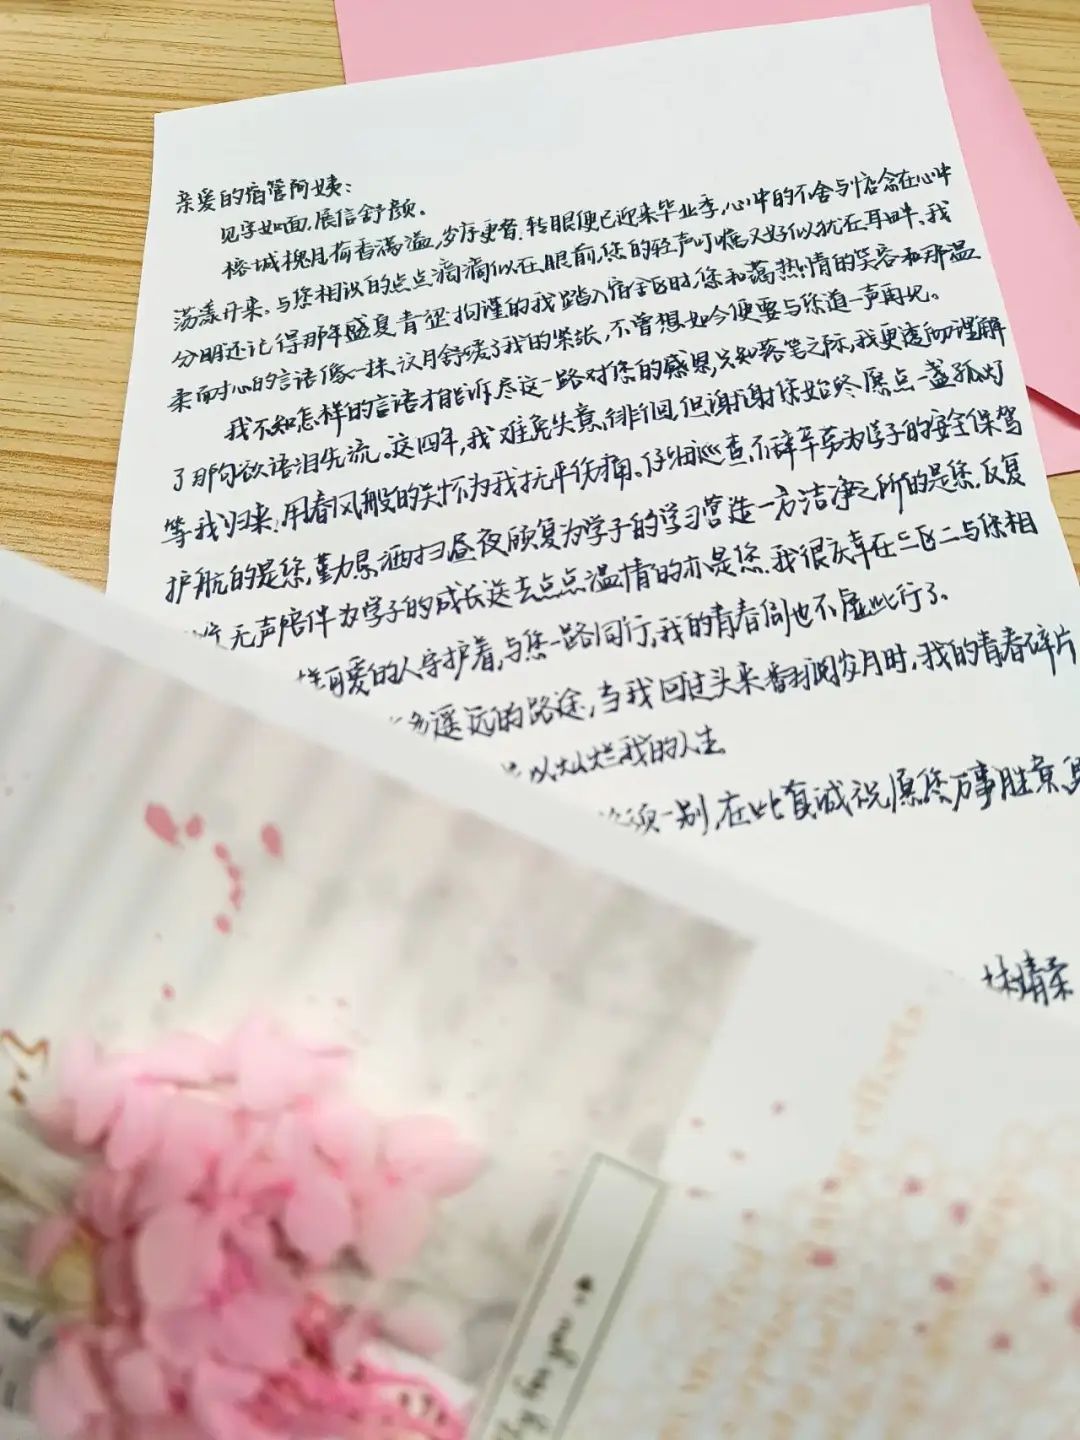 亲爱的宿管阿姨：
见字如面，展信舒颜。
榕城槐月荷香满溢，岁序更替，转眼便已迎来毕业季，心中的不舍与惦念在心中
荡漾开来。与您相识的点点滴滴似在眼前，您的轻声叮嘱又好似犹在耳畔。我
分明还记得那年盛夏青涩拘谨的我踏入宿舍区时，您和蔼热情的笑容和那温
柔耐心的言语像一抹汶月舒缓了我的紧张，不曾想如今便要与您道一声再见。
我不知怎样的言语才能诉尽这一路对您的感恩，只知落笔之际，我更透彻理解
了那句欲语泪先流。这四年，我难免失意、徘徊，但谢谢您始终愿点一盏孤灯
等我归来，用春风般的关怀为我抚平伤痛。仔细巡查，不辞辛劳为学子的安全保驾
护航的是您，勤勚洒扫昼夜顾复为学子的学习营造一方洁净之所的是您，反复
无声陪伴为学子的成长送去点点温情的亦是您。我很庆幸在三区二与您相
可爱的人守护着，与您一路同行，我的青春倒也不虚此行了。
遥远的路途，当我回过头来翻阅岁月时，我的青春碎片
以灿烂我的人生
须一别，在此真诚祝愿您万事胜意，
林靖柔